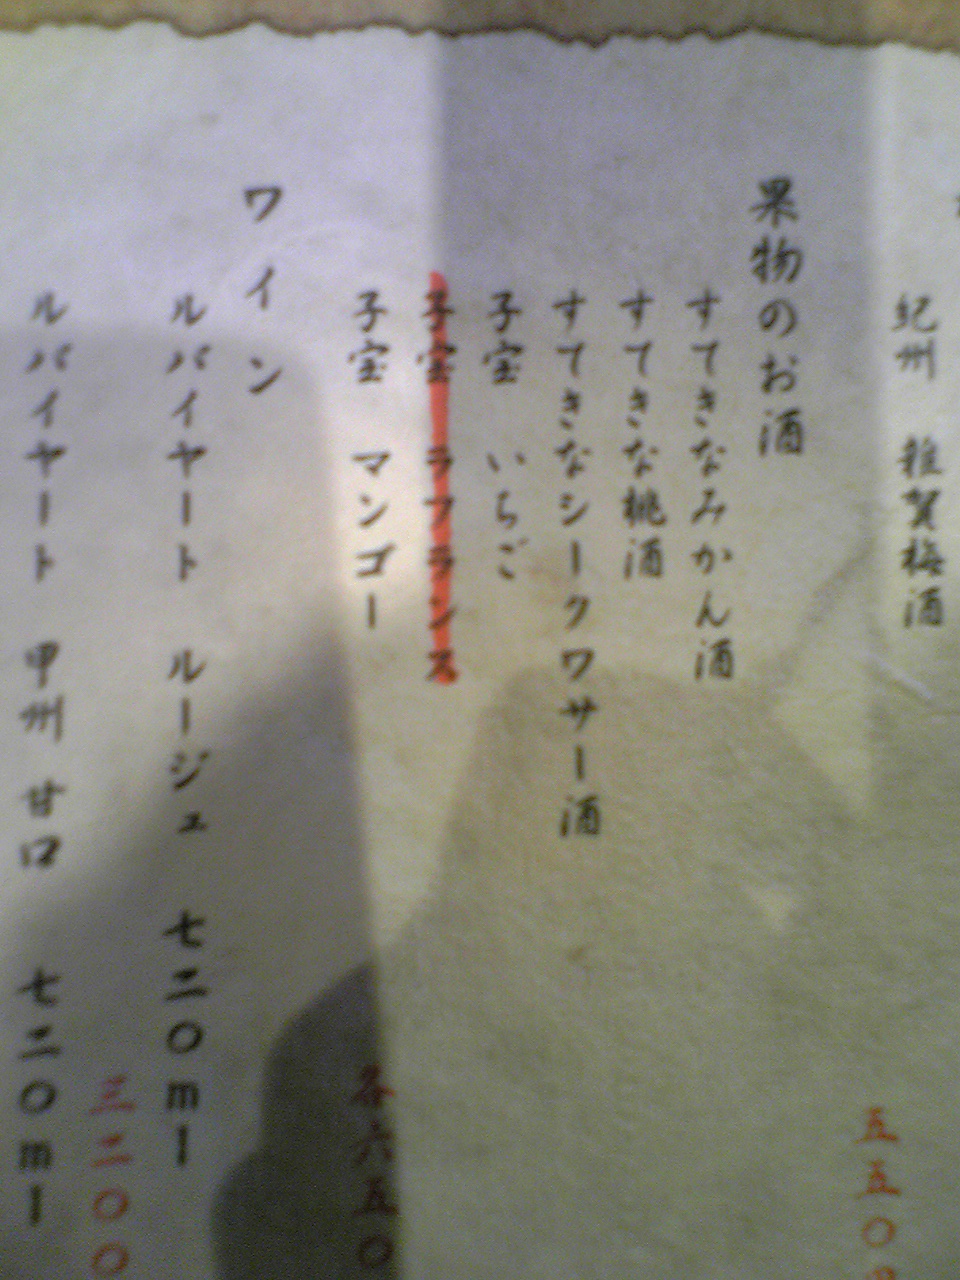 紀州 雑賀梅酒
五五〇
果物のお酒
すてきなみかん酒
すてきな桃酒
すてきなシークワサー酒
子宝 いちご
子宝 ラフランス
子宝 マンゴー
各六五〇
ワイン
ルバイヤート ルージュ 七二〇ml
三二〇〇
ルバイヤート 甲州 甘口 七二〇ml